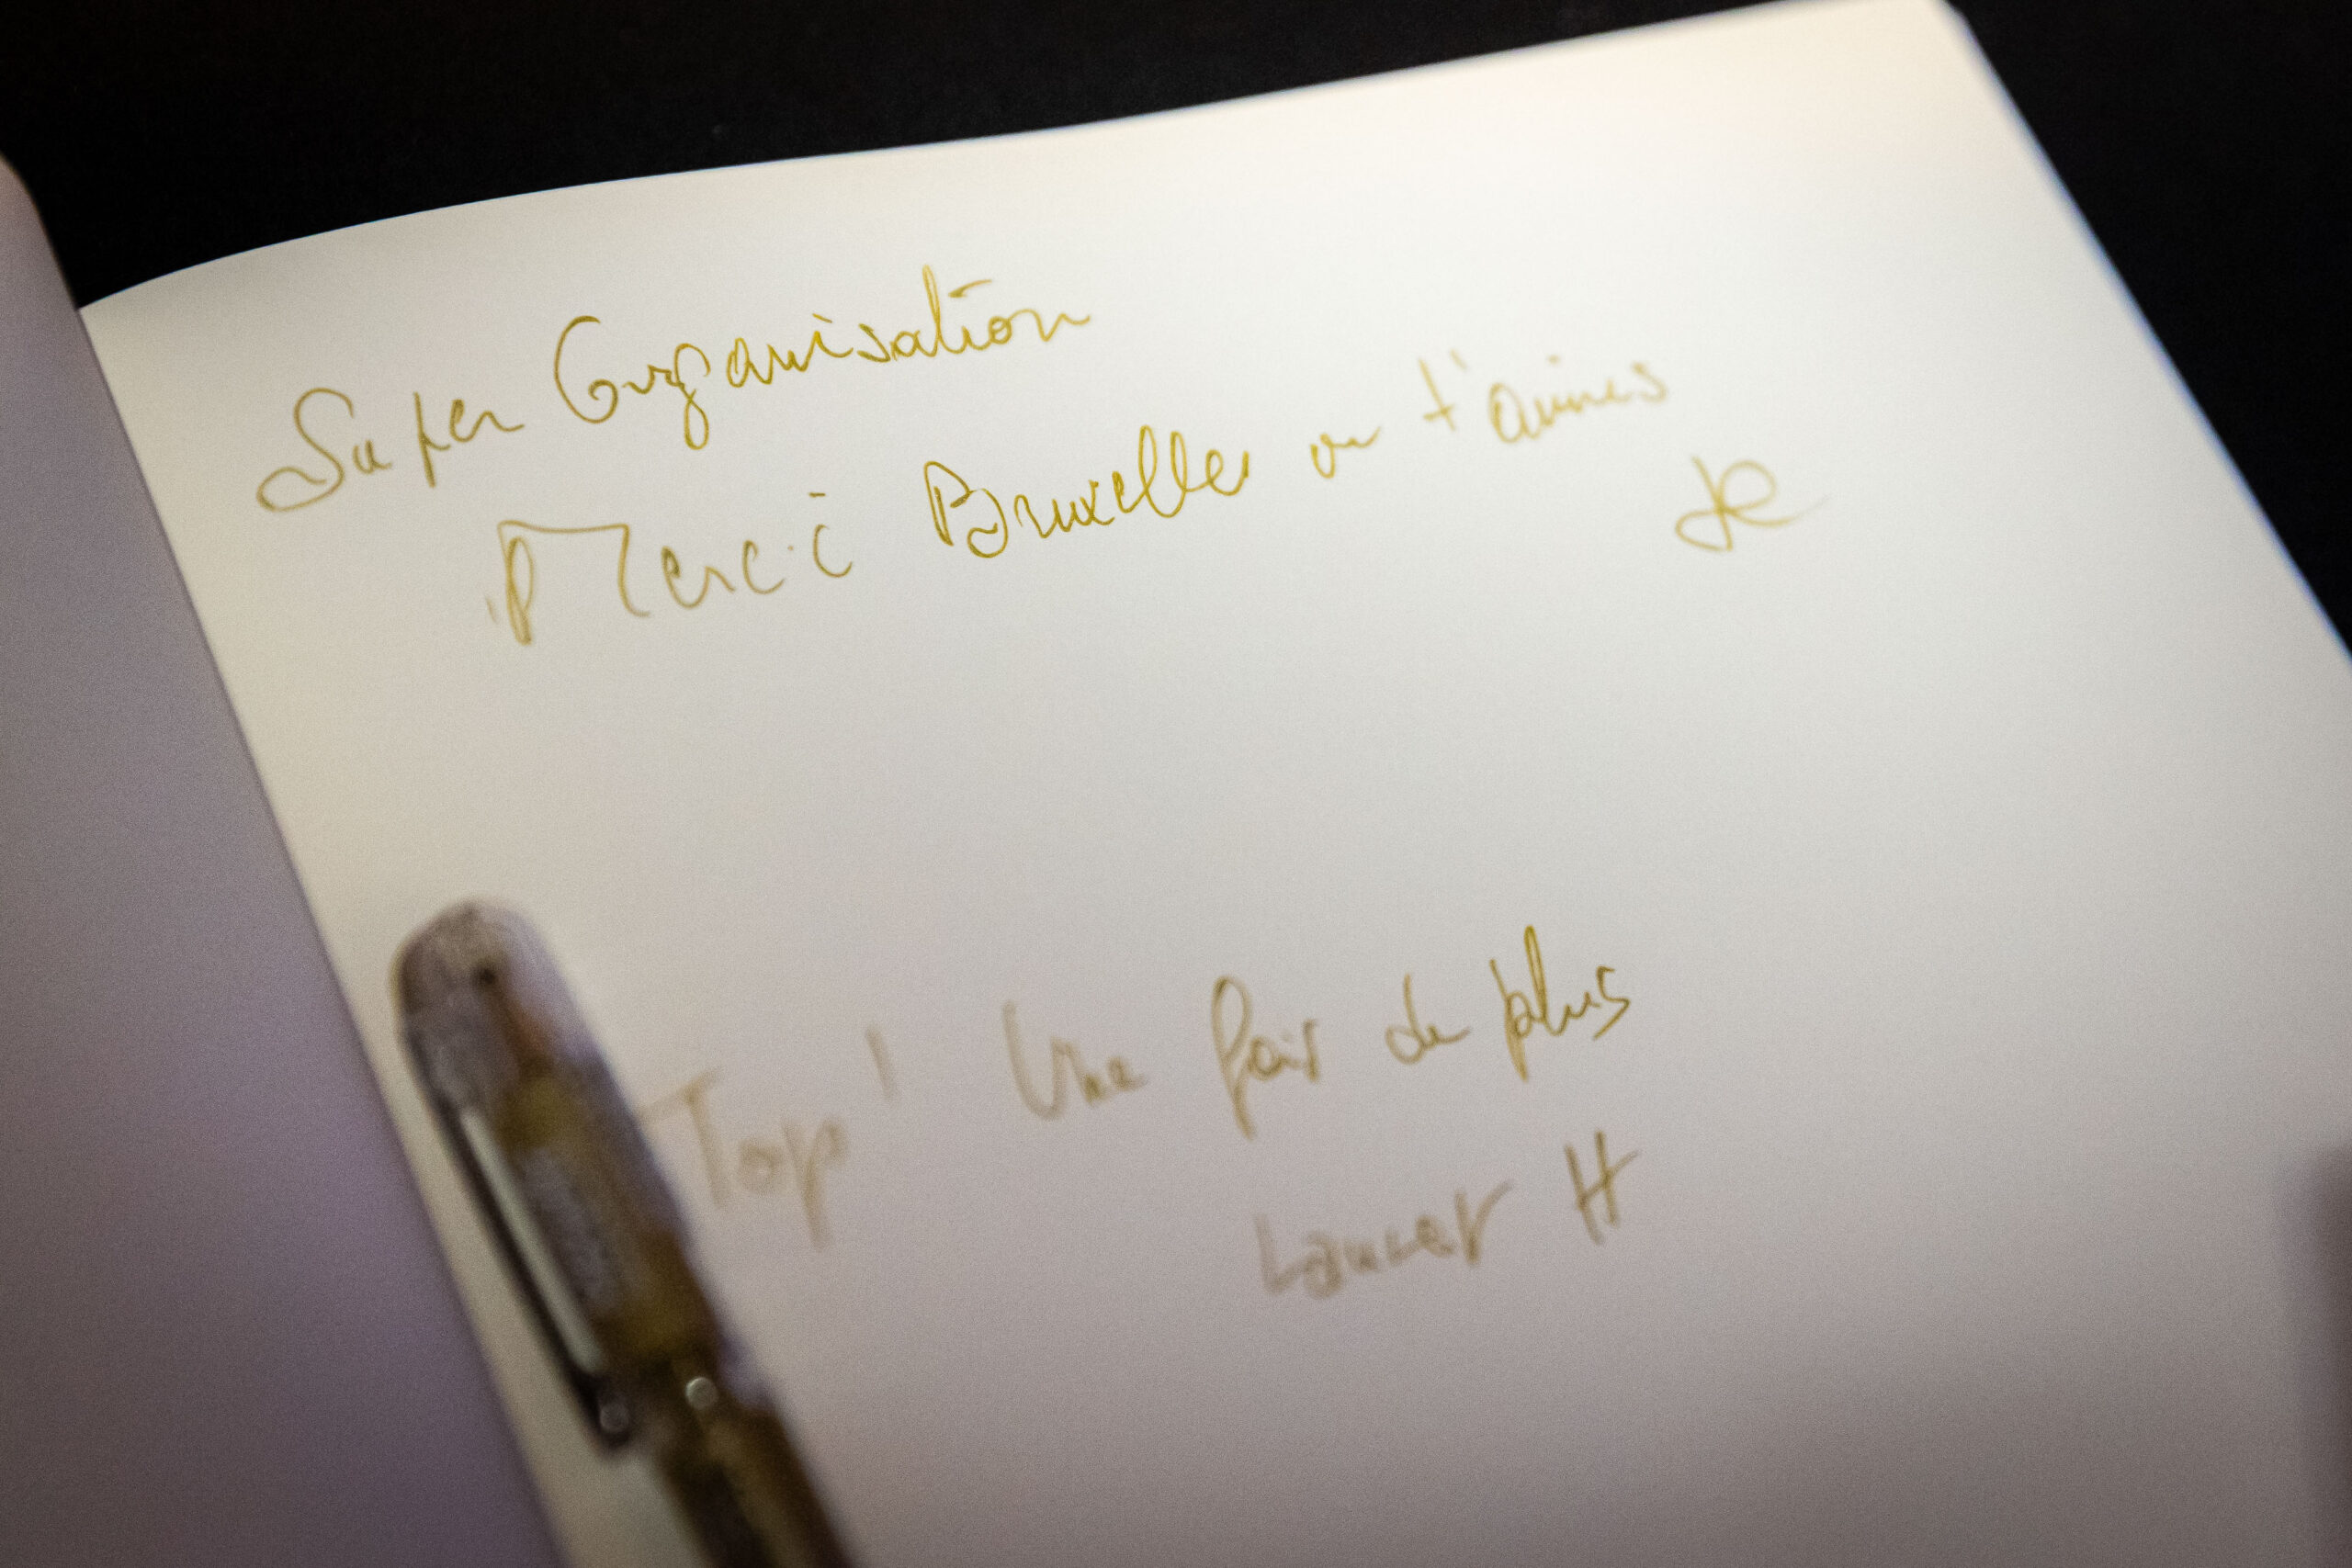 Super Organisation
Merci Bruxelles on t'aimes
JC
Top! Une fois de plus
Laurent H